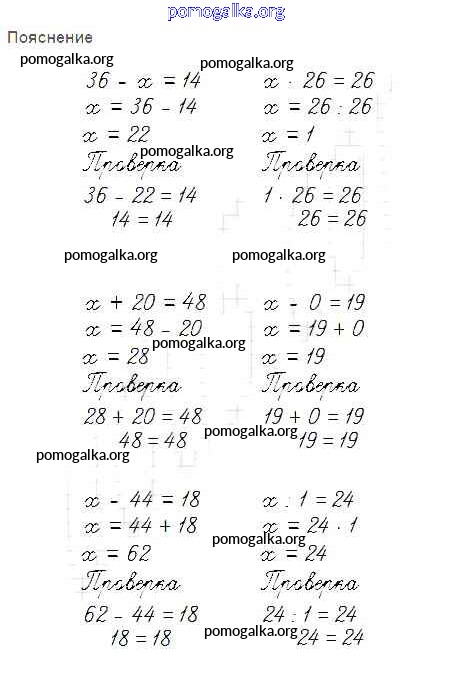 pomogalka.org
Пояснение
pomogalka.org
pomogalka.org
36 - x = 14
x = 36 - 14
x = 22
pomogalka.org
Проверка
36 - 22 = 14
14 = 14
x · 26 = 26
x = 26 : 26
x = 1
Проверка
1 · 26 = 26
26 = 26
pomogalka.org
pomogalka.org
x + 20 = 48
x = 48 - 20
x = 28
pomogalka.org
Проверка
28 + 20 = 48
48 = 48
x - 0 = 19
x = 19 + 0
x = 19
Проверка
19 + 0 = 19
pomogalka.org
19 = 19
pomogalka.org
x - 44 = 18
x = 44 + 18
x = 62
Проверка
62 - 44 = 18
18 = 18
x : 1 = 24
x = 24 · 1
pomogalka.org
x = 24
Проверка
24 : 1 = 24
pomogalka.org
24 = 24